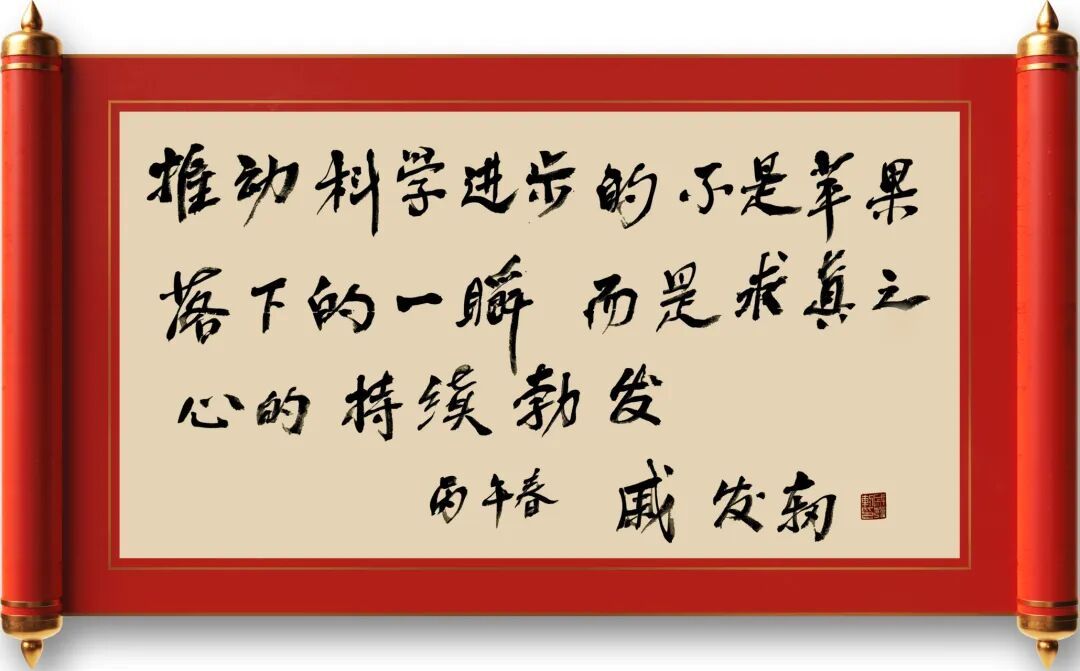 推动科学进步的不是苹果
落下的一瞬 而是求真之
心的持续勃发
丙午春 戚发轫